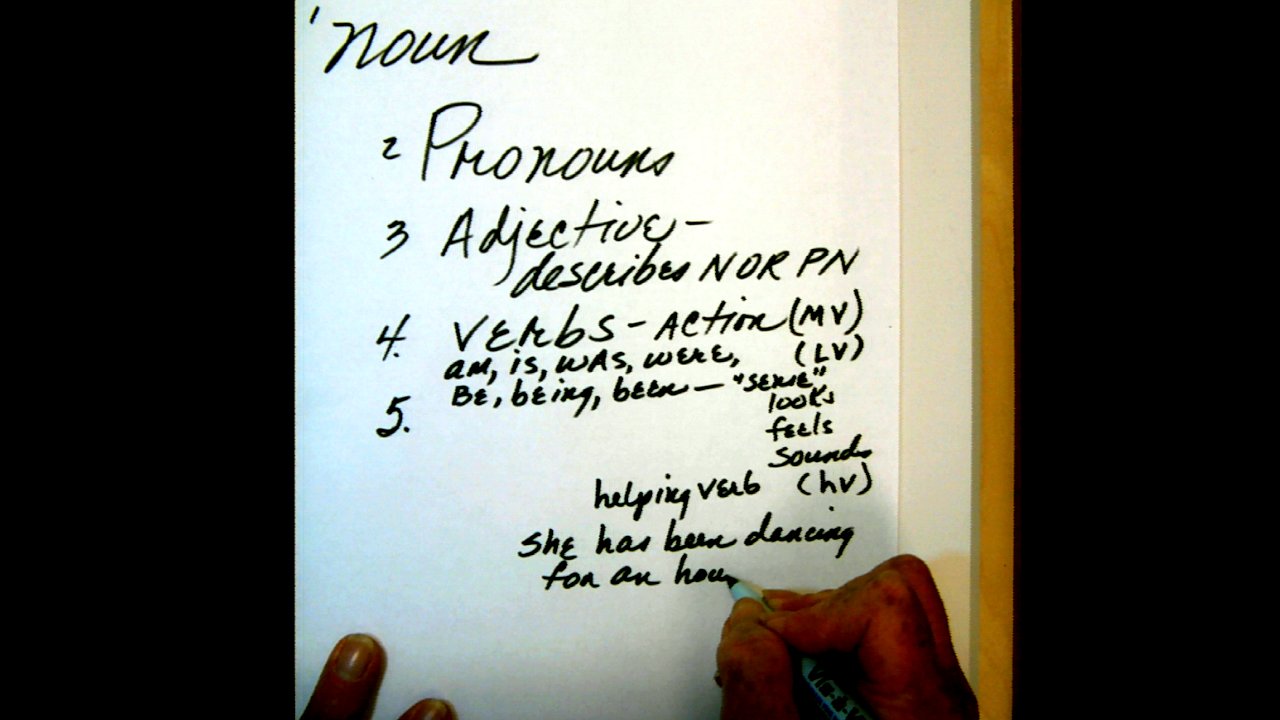 1 noun
2 Pronouns
3 Adjective -
describes N OR PN
4. VERBS - ACTION (MV)
am, is, WAS, WERE, (LV)
BE, being, been — "SENSE"
5. looks
feels
sounds
helping VERb (hV)
She has been dancing
for an hou